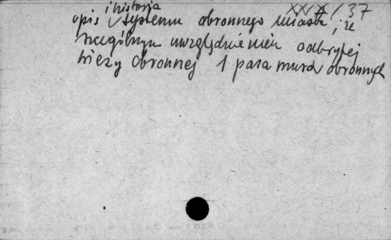 i historja XXIX/37
opis systemu obronnego miasta, ze
szczególnym uwzględnieniem odkrytej
wieży obronnej i pasa murów obronnych